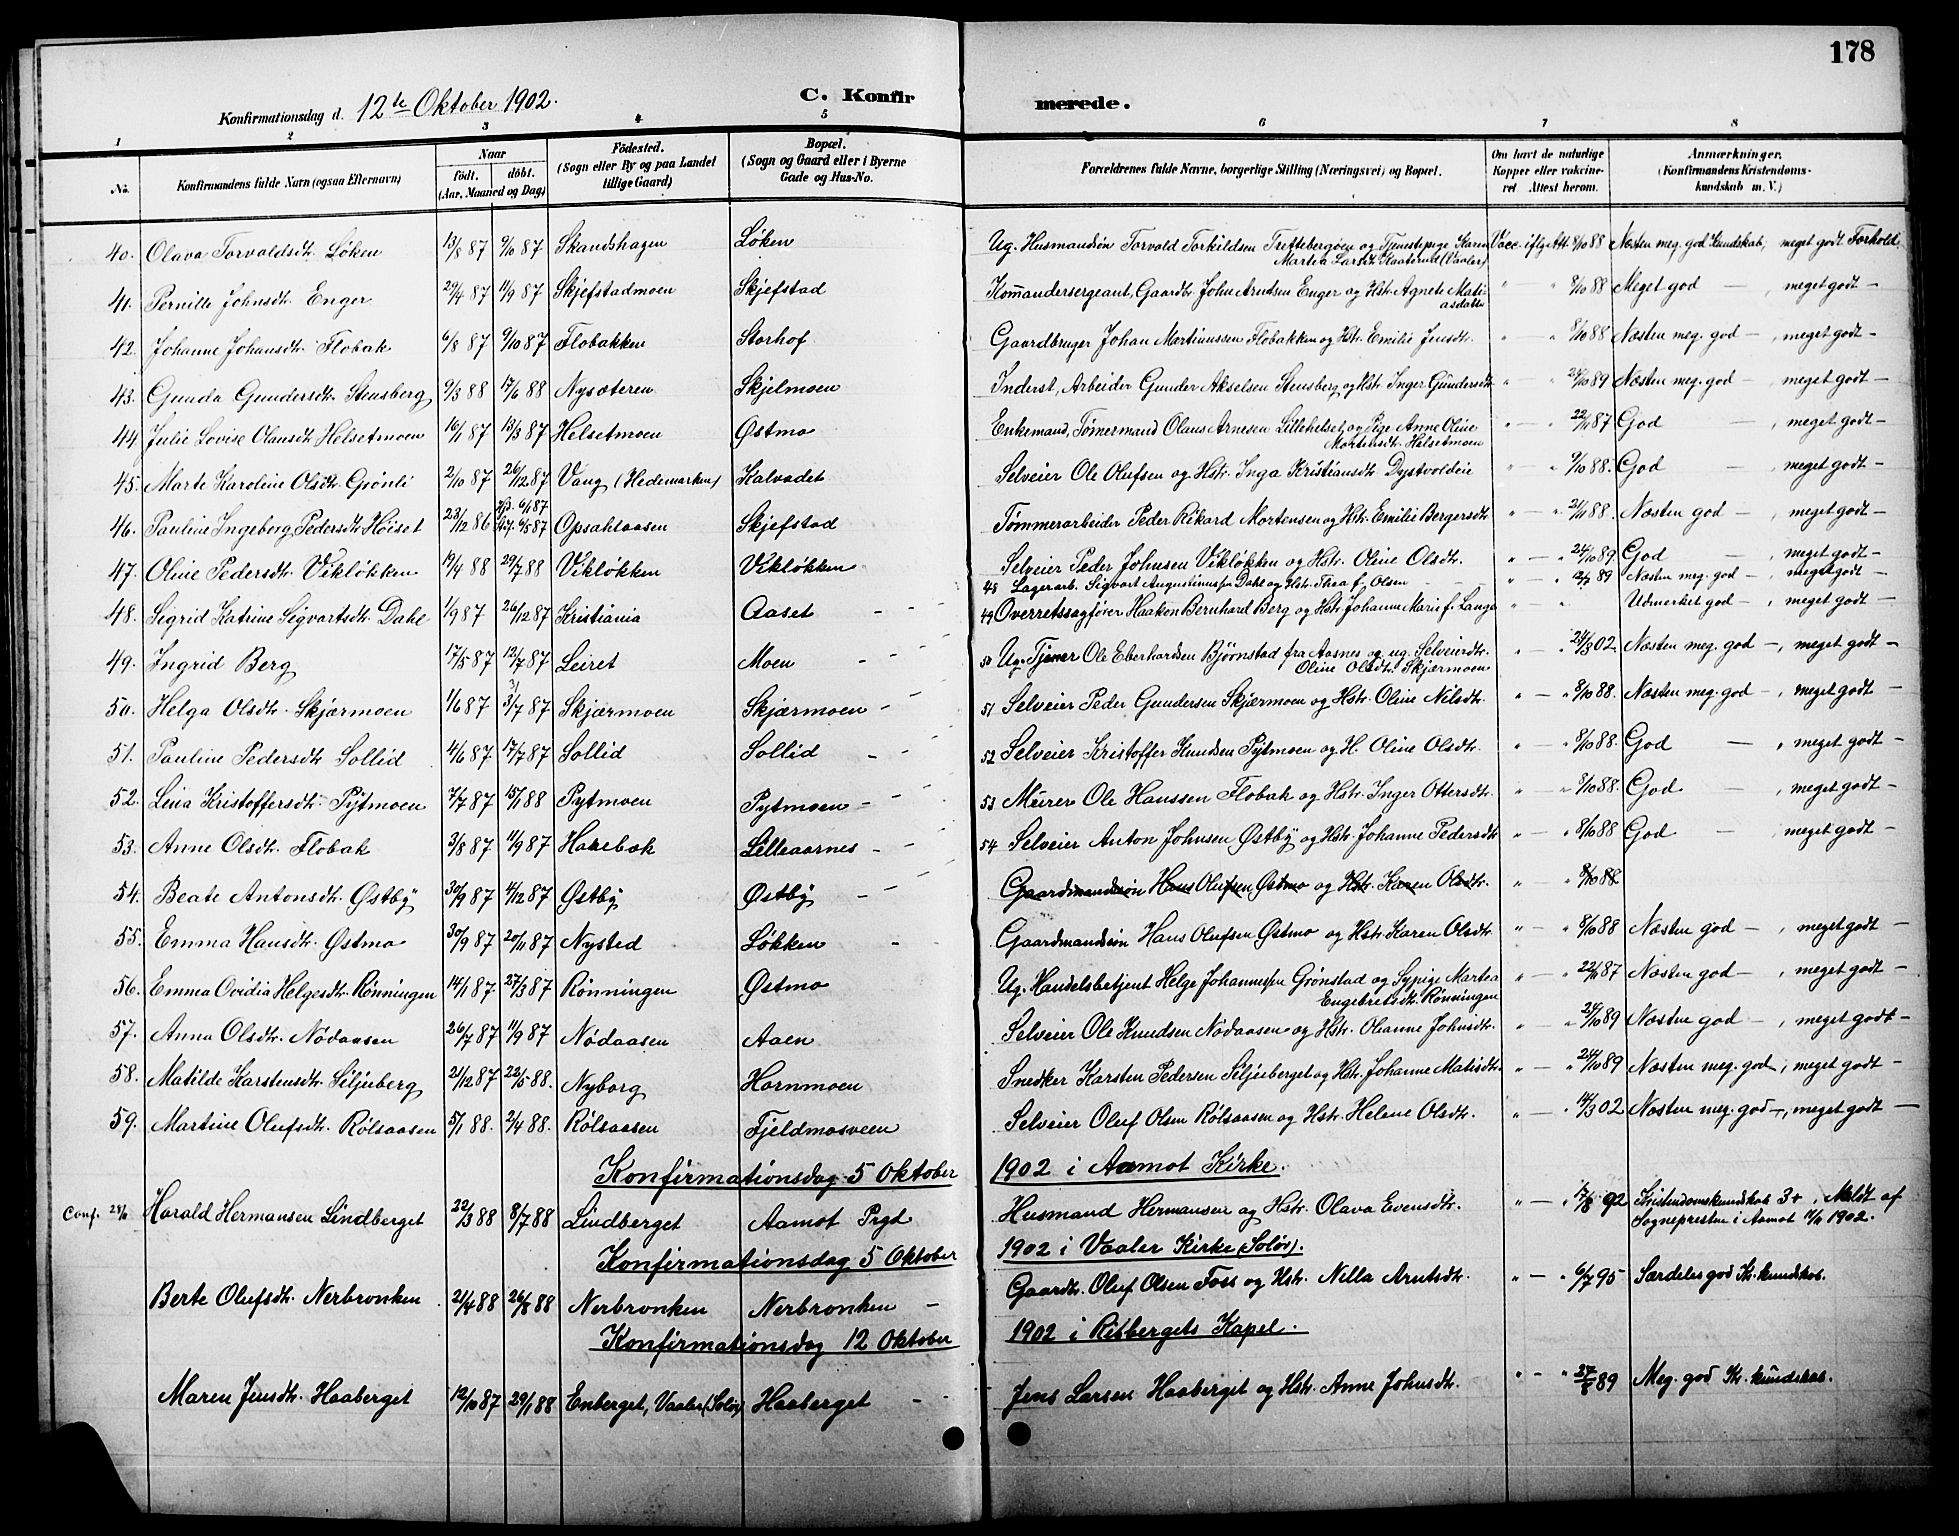 178
Konfirmationsdag d. 12te Oktober 1902. C. Konfirmerede.
1 2 3 4 5 6 7 8
No. Konfirmandens fulde Navn (ogsaa Efternavn) Naar født. døbt. (Aar, Maaned og Dag) Födested. (Sogn eller By og paa Landet tillige Gaard) Bopæl. (Sogn og Gaard eller i Byerne Gade og Hus-No. Forældrenes fulde Navne, borgerlige Stilling (Næringsvei) og Bopæl. Om havt de naturlige Kopper eller vaccineret Attest herom. Anmærkninger. (Konfirmandens Kristendomskundskab m. V.)
40. Olava Torvaldsdtr. Løken 13/8 87 9/10 87 Skandshagen Løken Ug. Husmandsøn Torvold Torkildsen Trettebergøen og Tjenestepige Karen Martea Larsdtr. Kaaterud (Vaaler) Vacc. iflg Att 8/10 88 Næsten meg. god Kundskab, meget godt Forhold
41. Pernille Johnsdtr. Enger 29/4 87 11/9 87 Skjefstadmoen Skjefstad Komandersergeant, Gaardbr. John Arntsen Enger og Hstr. Agnete Matiasdatter " — " 8/10 88 Meget god — , meget godt —
42. Johanne Johansdtr. Flobak 6/8 87 9/10 87 Flobakken Storhof Gaardbruger Johan Martinussen Flobakken og Hstr. Emilie Jensdtr. " — " 8/10 88 Næsten meg. god — , meget godt —
43. Gunda Gundersdtr. Stensberg 9/3 88 17/6 88 Nysæteren Skjelmoen Inderst, Arbeider Gunder Akselsen Stensberg og Hstr. Inger Gundersdtr " — " 24/10 89 Næsten meg. god — , meget godt —
44. Julie Lovise Olausdtr. Helsetmoen 16/1 87 13/3 87 Helsetmoen Østmo Enkemand, Tømermand Olaus Arnesen Lillehelset og Pige Anne Oline Mortensdtr. Helsetmoen " — " 22/11 87 God — , meget godt —
45. Marte Karoline Olsdtr. Grønli 2/10 87 26/12 87 Vang (Hedemarken) Kalvadet Selveier Ole Olufsen og Hstr. Inga Kristiansdtr Dystvoldeie " — " 9/10 88. God — meget godt —
46. Pauline Ingeborg Pedersdtr Høiset 23/12 86 Hjd. 6/1 87 6/5 87 Opsahlaasen Skjefstad Tømmerarbeider Peder Rikard Mortensen og Hstr. Emilie Bergersdtr " — " 21/11 88. Næsten god — , meget godt —
47. Oline Pedersdtr. Vikløkken 19/4 88 29/7 88 Vikløkken Vikløkken Selveier Peder Johnsen Vikløkken og Hstr. Oline Olsdtr. " — " 24/10 89 God — , meget godt —
48. Sigrid Katrine Sigvartsdtr. Dahl 1/9 87 26/12 87 Kristiania Aaset 48 Lagerarb. Sigvart Augustinussen Dahl og Hstr. Thea f. Olsen " — " 89 Næsten meg. god — , meget godt —
49. Ingrid Berg 17/5 87 12/7 87 Leiret Moen 49 Overretssagfører Haaken Bernhard Berg og Hstr. Johanne Marie f. Lange " — " Udmerket god — , meget godt —
50. Helga Olsdtr. Skjærmoen 1/6 87 3/7 87 Skjærmoen Skjærmoen 50 Ug. Tjener Ole Eberhardsen Bjørnstad fra Aasnes og ug. Selveierdtr. Oline Olsdtr. Skjærmoen " — " 24/3 02 Næsten meg. god —, meget godt —
51. Pauline Pedersdtr Sollid 4/6 87 17/7 87 Sollid Sollid 51 Selveier Peder Gundersen Skjærmoen og Hstr. Oline Nilsdtr. " — " 8/10 88. Næsten meg. god —, meget godt —
52. Lina Kristoffersdtr. Pytmoen 7/7 87 15/1 88 Pytmoen Pytmoen 52 Selveier Kristoffer Knudsen Pytmoen og H. Oline Olsdtr. " — " 8/10 88. God — , meget godt —
53. Anne Olsdtr. Flobak 3/8 87 11/9 87 Harebak Lilleaarnes 53 Murer Ole Hanssen Flobak og Hstr. Inger Ottersdtr. " — " 8/10 88. God — , meget godt —
54. Beate Antonsdtr. Østby 30/9 87 4/12 87 Østby Østby 54 Selveier Anton Johnsen Østby og Hstr. Johanne Pedersdtr " — " 8/10 88 God — , meget godt —
Gaardmandsøn Hans Olufsen Østmo og Hstr. Karen Olsdtr. " — " 8/10 88
55. Emma Hansdtr. Østmo 30/9 87 20/11 87 Nysted Løkken Gaardmandsøn Hans Olufsen Østmo og Hstr. Karen Olsdtr " — " 8/10 88 Næsten god — , meget godt —
56. Emma Ovidia Helgesdtr. Rønningen 14/1 87 27/3 87 Rønningen Østmo Ug. Handelsbetjent Helge Johannessen Grønstad og Sypige Martea Engebretsdtr. Rønningen " — " 22/11 87 Næsten god — , meget godt —
57. Anna Olsdtr. Nødaasen 26/7 87 11/9 87 Nødaasen Aaen Selveier Ole Knudsen Nødaasen og Hstr. Olianne Johnsdtr. " — " 24/10 89 Næsten god — , meget godt —
58. Matilde Karstensdtr. Siljuberg 21/12 87 22/5 88. Nyborg Hornmoen Snedker Karsten Pedersen Siljuberget og Hstr. Johanne Matisdtr. " — " 24/10 89 Næsten meg. god, meget godt —
59. Martine Olufsdtr. Rølsaasen 5/1 88. 2/4 88. Rølsaasen Fjeldmosveen Selveier Oluf Olsen Rølsaasen og Hstr. Helene Olsdtr. " — " 14/3 02 Næsten meg. god —, meget godt —
Konfirmationsdag 5 Oktober 1902 i Aamot Kirke.
Conf. Harald Hermansen Lindberget 22/3 88 8/7 88 Lindberget Aamot Prgd Husmand Hermansen og Hstr. Olava Evensdtr. " — " 92 Kristendomskundskab 3+, Meldt af Sognepresten i Aamot 11/11 1902.
Konfirmationsdag 5 Oktober 1902 i Vaaler Kirke (Solør).
Berte Olufsdtr. Nerbronken 2/4 88 26/8 88 Nerbronken Nerbronken — Gaardbr. Oluf Olsen Foss og Hstr. Nilla Arntsdtr. " — " 6/7 95 Særdeles god Kr. kundskab.
Konfirmationsdag 12 Oktober 1902 i Risbergets Kapel.
Maren Jensdtr. Haaberget 12/10 87 29/1 88 Enberget, Vaaler (Solør) Haaberget Jens Larsen Haaberget og Hstr. Anne Johnsdtr. " — " 89 Meg. god Kr. kundskab.